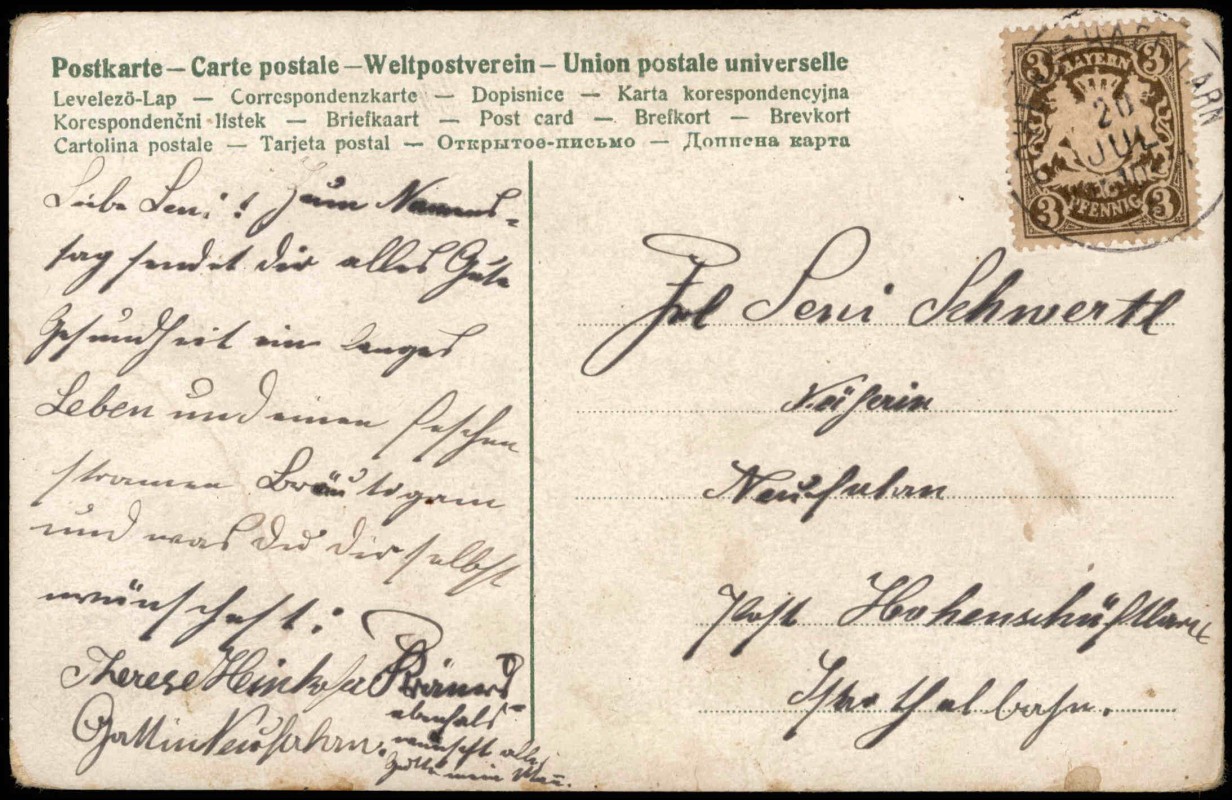 Postkarte — Carte postale — Weltpostverein — Union postale universelle
Levelezö-Lap — Correspondenzkarte — Dopisnice — Karta korespondencyjna
Korespondenčni lístek — Briefkaart — Post card — Brefkort — Brevkort
Cartolina postale — Tarjeta postal — Открытое-письмо — Дописна карта
3 BAYERN 3
3 PFENNIG 3
20
JUL
Liebe Leni! Zum Namens-
tag sendet dir alles Gute
Gesundheit ein langes
Leben und einen feschen
stramen Bräutigam
und was du dir selbst
wünschest:
Therese
Gattin Neufahrn.
ebenfals
wünscht alles
gute mein Man.
Frl Leni Schwertl
Näherin
Neufahrn
Post Hohenschäftlarn
Isarthalbahn.